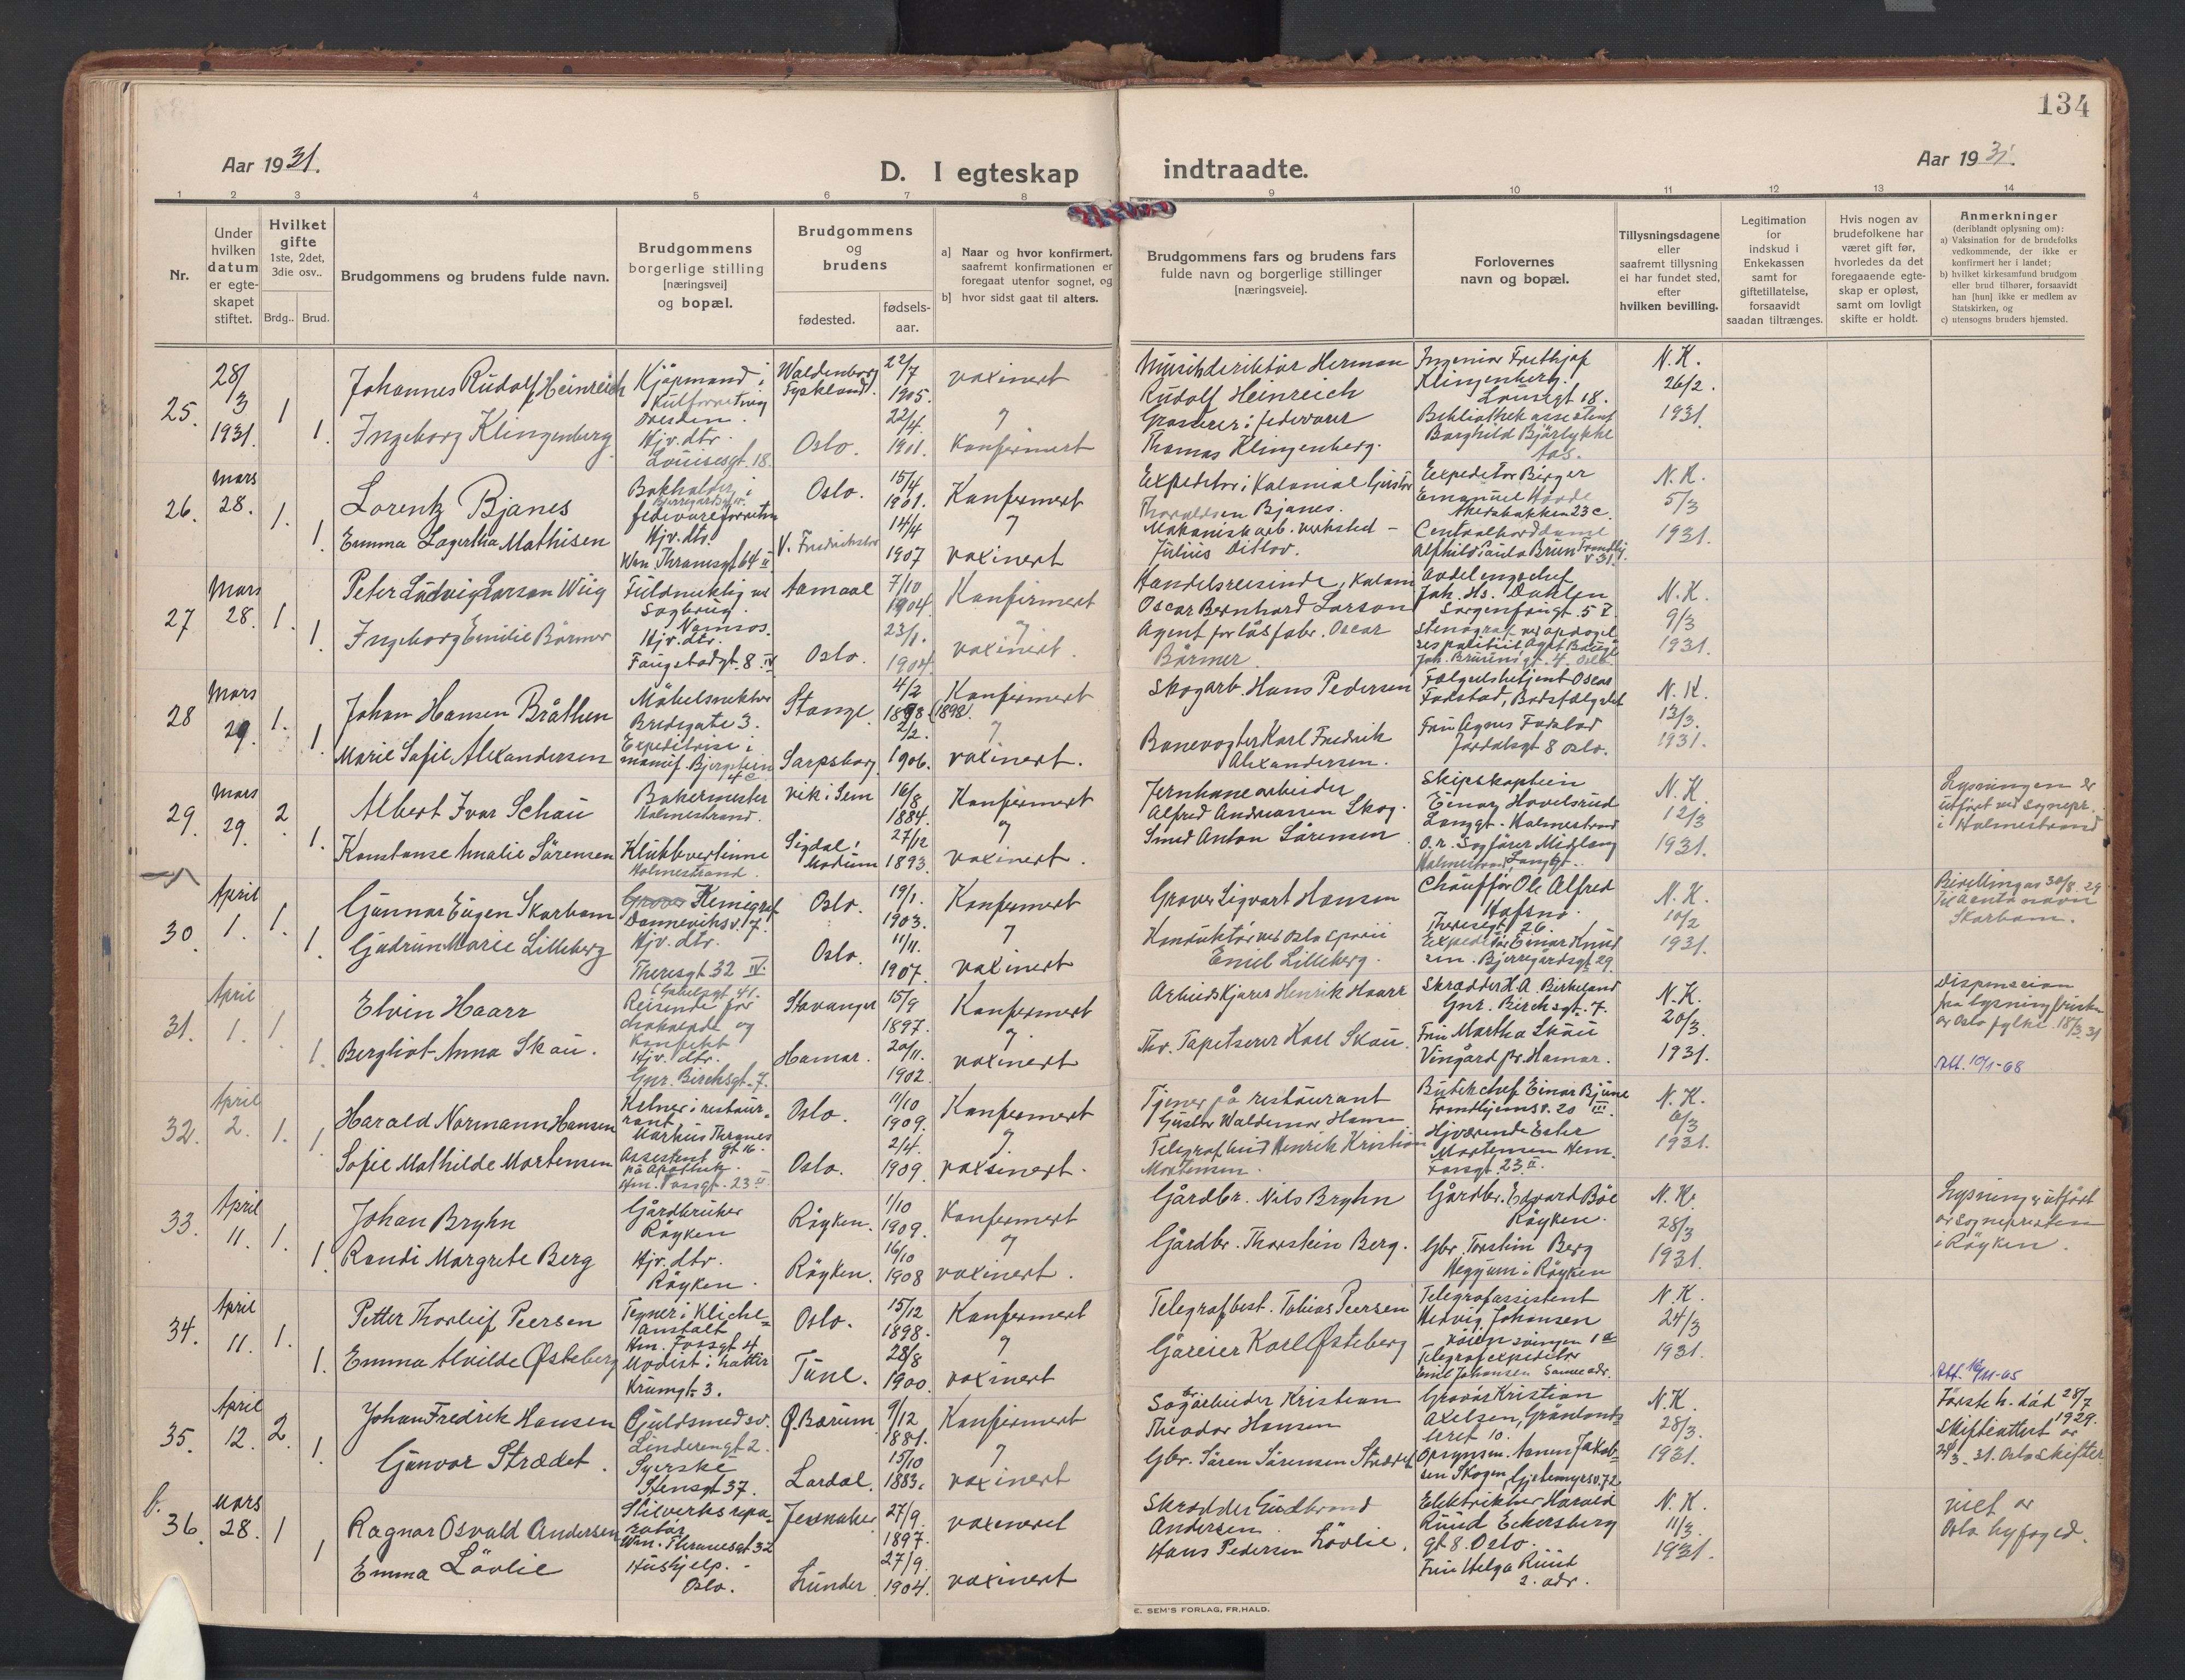 134
Aar 1931.
D. I egteskap indtraadte.
Aar 1931.
1 2 3 4 5 6 7 8 9 10 11 12 13 14
Nr.
Under hvilken datum er egte-skapet stiftet.
Hvilket gifte 1ste, 2det, 3die osv..
Brdg.. Brud.
Brudgommens og brudens fulde navn.
Brudgommens borgerlige stilling [næringsvei] og bopæl.
Brudgommens og brudens
fødested.
fødsels-aar.
a] Naar og hvor konfirmert, saafremt konfirmationen er foregaat utenfor sognet, og
b] hvor sidst gaat til alters.
Brudgommens fars og brudens fars fulde navn og borgerlige stillinger [næringsveie].
Forlovernes navn og bopæl.
Tillysningsdagene eller saafremt tillysning ei har fundet sted, efter hvilken bevilling.
Legitimation for indskud i Enkekassen samt for giftetillatelse, forsaavidt saadan tiltrænges.
Hvis nogen av brudefolkene har været gift før, hvorledes da det foregaaende egte-skap er opløst, samt om lovligt skifte er holdt.
Anmerkninger (deriblandt oplysning om):
a) Vaksination for de brudefolks vedkommende, der ikke er konfirmert her i landet;
b) hvilket kirkesamfund brudgom eller brud tilhører, forsaavidt han [hun] ikke er medlem av Statskirken, og
c) utensogns bruders hjemsted.
25. 28/3 1931. 1 1.
Johannes Rudolf Heinreich
Kjøpmand i Dresden.
Waldenborg Tyskland. 22/7 1905.
vaxinert
Ingeborg Klingenberg
Hjv. dtr. Louisesgt. 18.
Oslo. 22/4. 1901.
Konfirmert
Musikdirektør Herman Rudolf Heinreich
Grosserer i fedevarer Thomas Klingenberg.
Ingeniør Frithjof Klingenberg. Louisegt 18.
Bibliothek assistent Borghild Bjørlykke
N.K. 26/2. 1931.
26. Mars 28. 1. 1.
Lorentz Bjanes
Bokholder i fedevareforretn
Oslo. 15/4 1901.
Konfermert
Emma Lagertha Mathisen
Hjv. dtr. Wm. Thranesgt 64 II
V. Fredrikstad 14/4 1907
vaxinert
Expeditør i Kolonial Gustav Thoraldsen Bjanes.
Mekanisk arb. verksted - Julius Ditlev.
Expeditør Birger Emanuel 23 c.
Alfhild Paula Brun
N.K. 5/3 1931.
27 Mars 28. 1. 1.
Peter Ludvig Larson Wiig
Fuldmektig ved Sagbrug. Namsos.
Aamaal 7/10 1904.
Konfirmert
Ingeborg Emilie Børmer
Hjv. dtr. Faugstadgt. 8. IV
Oslo. 23/1. 1904.
vaxinert.
Handelsreisende, Koloni Oscar Bernhard Larson
Agent for låsfabr. Oscar Børmer
Avdelingschef Joh. Hs. Dahlen Sorgenfrigt. 5 I.
Stenograf ved Joh. Bruunsgt. 4 Oslo.
N.K. 9/3 1931.
28 Mars 29. 1. 1.
Johan Hansen Bråthen
Møbelsnekker Bredegate 3.
Stange 4/2 1898 (1898)
Konfirmert
Marie Sofie Alexandersen
Expeditrise i manuf. Bjergstien 4c
Sarpsborg. 2/2. 1906.
vaxinert.
Skogarb. Hans Pedersen
Banevogter Karl Fredrik Alexandersen.
Fængselsbetjent Oscar Forstad, Botsfængslet
Fru Agnes Forstad Jordalsgt 8 Oslo.
N.K. 13/3. 1931.
29. Mars 29. 2. 1.
Albert Ivar Schau
Bakermester Holmestrand.
Vik i Sem 16/8 1884.
Konfermert
Konstanse Amalie Sørensen
Klubbvertinne Holmestrand.
Sigdal, Modum 27/12 1893.
vaxinert.
Jernbanearbeider Alfred Andreassen Skog.
Smed Anton Sørensen
Skipskaptein Einar Hovelsrud Langgt. Holmestrand
O.r. Sagfører Midlang Holmestrand, Langgt..
N.K. 12/3 1931.
Lysningen er utført ved sognepr. i Holmestrand
30. April 1. 1. 1.
Gunnar Eugen Skarbom
Graver Kemigraf Dannevihsv. 17.
Oslo. 19/1. 1903.
Konfermert
Gudrun Marie Lilleberg
Hjv. dtr. Theresgt 32 IV.
Oslo. 11/11. 1907.
vaxinert
Graver Sigvart Hansen
Konduktør ved Oslo sporvei Emil Lilleberg.
Chauffør Ole Alfred Hafsno. Theresegt 26.
Expeditør Einar Knudsen. Bjerregårdsgt 29.
N.K. 10/2 1931.
Bevilling av 30/8. 29 til å anta navn Skarbom.
31. April 1. 1. 1.
Elvin Haarr
Gabelsgt 41. Reisende for chokolade og konfekt
Stavanger 15/9 1897.
Konfermert
Bergliot Anna Skau.
Hjv. dtr. Gnr. Birchsgt. 7.
Hamar. 20/11. 1902.
vaxinert
Arbeidskjører Henrik Haarr
Thv. Tapetserer Karl Skau.
Skrædder H.A. Birkeland Gnr. Birchsgt. 7.
Fru Martha Skau Vingård pr. Hamar.
N.K. 20/3. 1931.
Dispensation fra lysning av Oslo fylke. 18/3 31
Att. 10/1-68
32. April 2. 1. 1.
Harald Normann Hansen
Kelner i restaurant Markus Thranes gt 16.
Oslo. 11/10 1909.
Konfermert
Sofie Mathilde Mortensen
Assistent på Apothek. Hm. Fossgt. 23 II
Oslo. 2/4. 1909.
vaxsinert.
Tjener på restaurant Gustav Waldemar Hansen
Telegrafbud Henrik Kristian Mortensen.
Butikchef Einar Bjune Trondhjemsv. 20 III.
Hjværende Ester Mortensen Hem. Fossgt. 23 II.
N.K. 6/3 1931.
33. April 11. 1. 1.
Johan Bryhn
Gårdbruker Røyken
Røyken. 1/10 1909.
Konfermert
Randi Margrete Berg
Hjv. dtr. Røyken.
Røyken. 16/10 1908
vaxinert.
Gårdbr. Nils Bryhn
Gårdbr. Thorstein Berg.
Gårdbr. Edvard Bøe Røyken.
Gbr. Torstein Berg Heggum i Røyken
N.K. 28/3 1931.
Lysning er utført av sognepresten i Røyken.
34. April 11. 1. 1.
Petter Thorleif Peersen
Tegner i Kliche-anstalt Hm. Fossgt 4
Oslo. 15/12 1898.
Konfermert
Emma Alvilde Østeberg
Modist i hatter Krumgt. 3.
Tune. 28/8 1900.
vaxinert
Telegrafbest. Tobias Peersen
Gåreier Karl Østeberg
Telegrafassistent Hedvig Johansen 1a
Telegrafexpeditør Emil Johansen Samme adr.
N.K. 24/3 1931.
Att. 16/11-65
35. April 12. 2. 1.
Johan Fredrik Hansen
Gjuldsmed sv. Linderengt 2.
Ø. Bærum 9/12 1881.
Konfermert
Gunvor Strædet.
Syerske Stensgt 37.
Lardal. 15/10 1883.
vaxinert
Sagarbeider Kristian Theodor Hansen
Gbr. Søren Sørensen Strædet
Gravør Kristian Axelsen, Grønlandsleret 10.
Opsynsm. Anton Jakobsen Skogen, Gjetemyrsv. 72.
N.K. 28/3. 1931.
Første h. død 28/7 1929. Skifteattest av 24/3. 31. Oslo skifter
b. 36. Mars 28. 1 1
Ragnar Osvald Andersen
Skilverks reparatør Wm. Thranesgt 32
Jevnaker 27/9. 1897.
vaxineret
Emma Løvlie
Hushjelp. Oslo.
Lunder 27/9. 1904.
vaxinert
Skrædder Gudbrand Andersen.
Hans Pedersen Løvlie.
Elektriker Harald Ruud Eckersberg gt 8. Oslo.
Fru Helga Ruud s. adr.
N.K. 11/3. 1931.
viet av Oslo byfoged.
E. SEM'S FORLAG, FR.HALD.